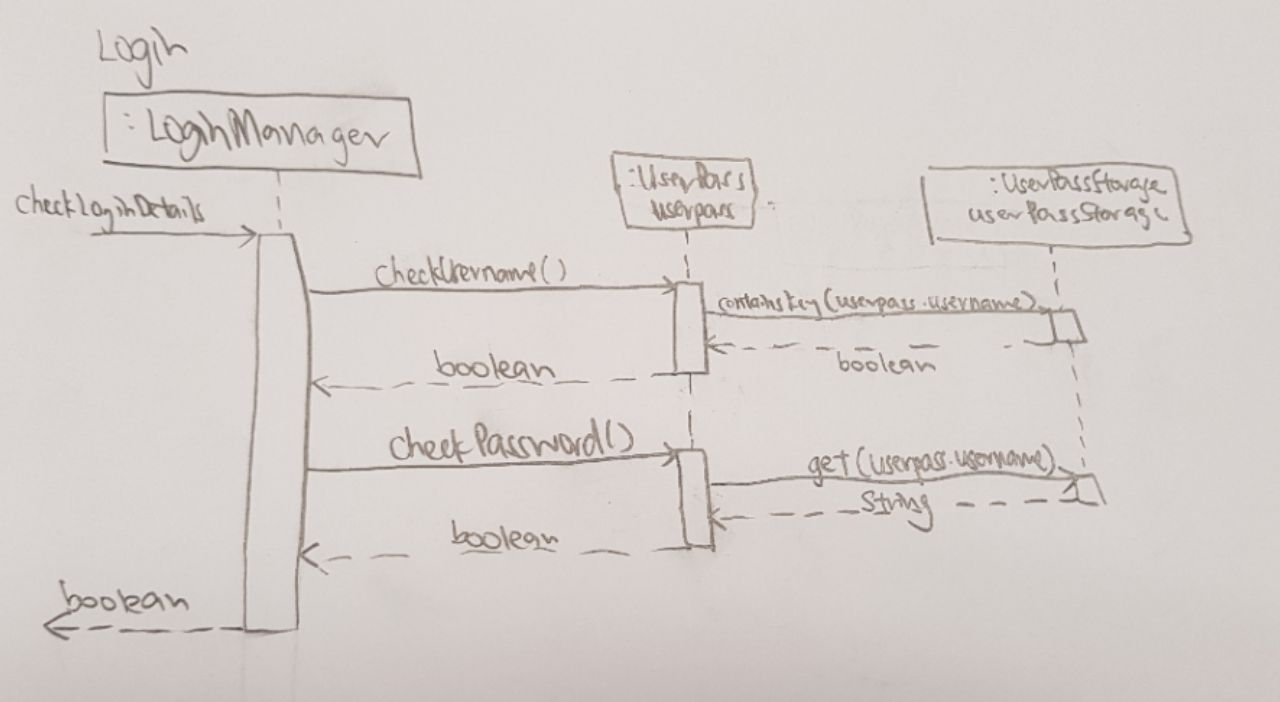 Login
:LoginManager
:UserPass
userpass
:UserPassStorage
userPassStorage
checkLoginDetails
checkUsername()
containsKey(userpass.username)
boolean
boolean
checkPassword()
get(userpass.username)
String
boolean
boolean